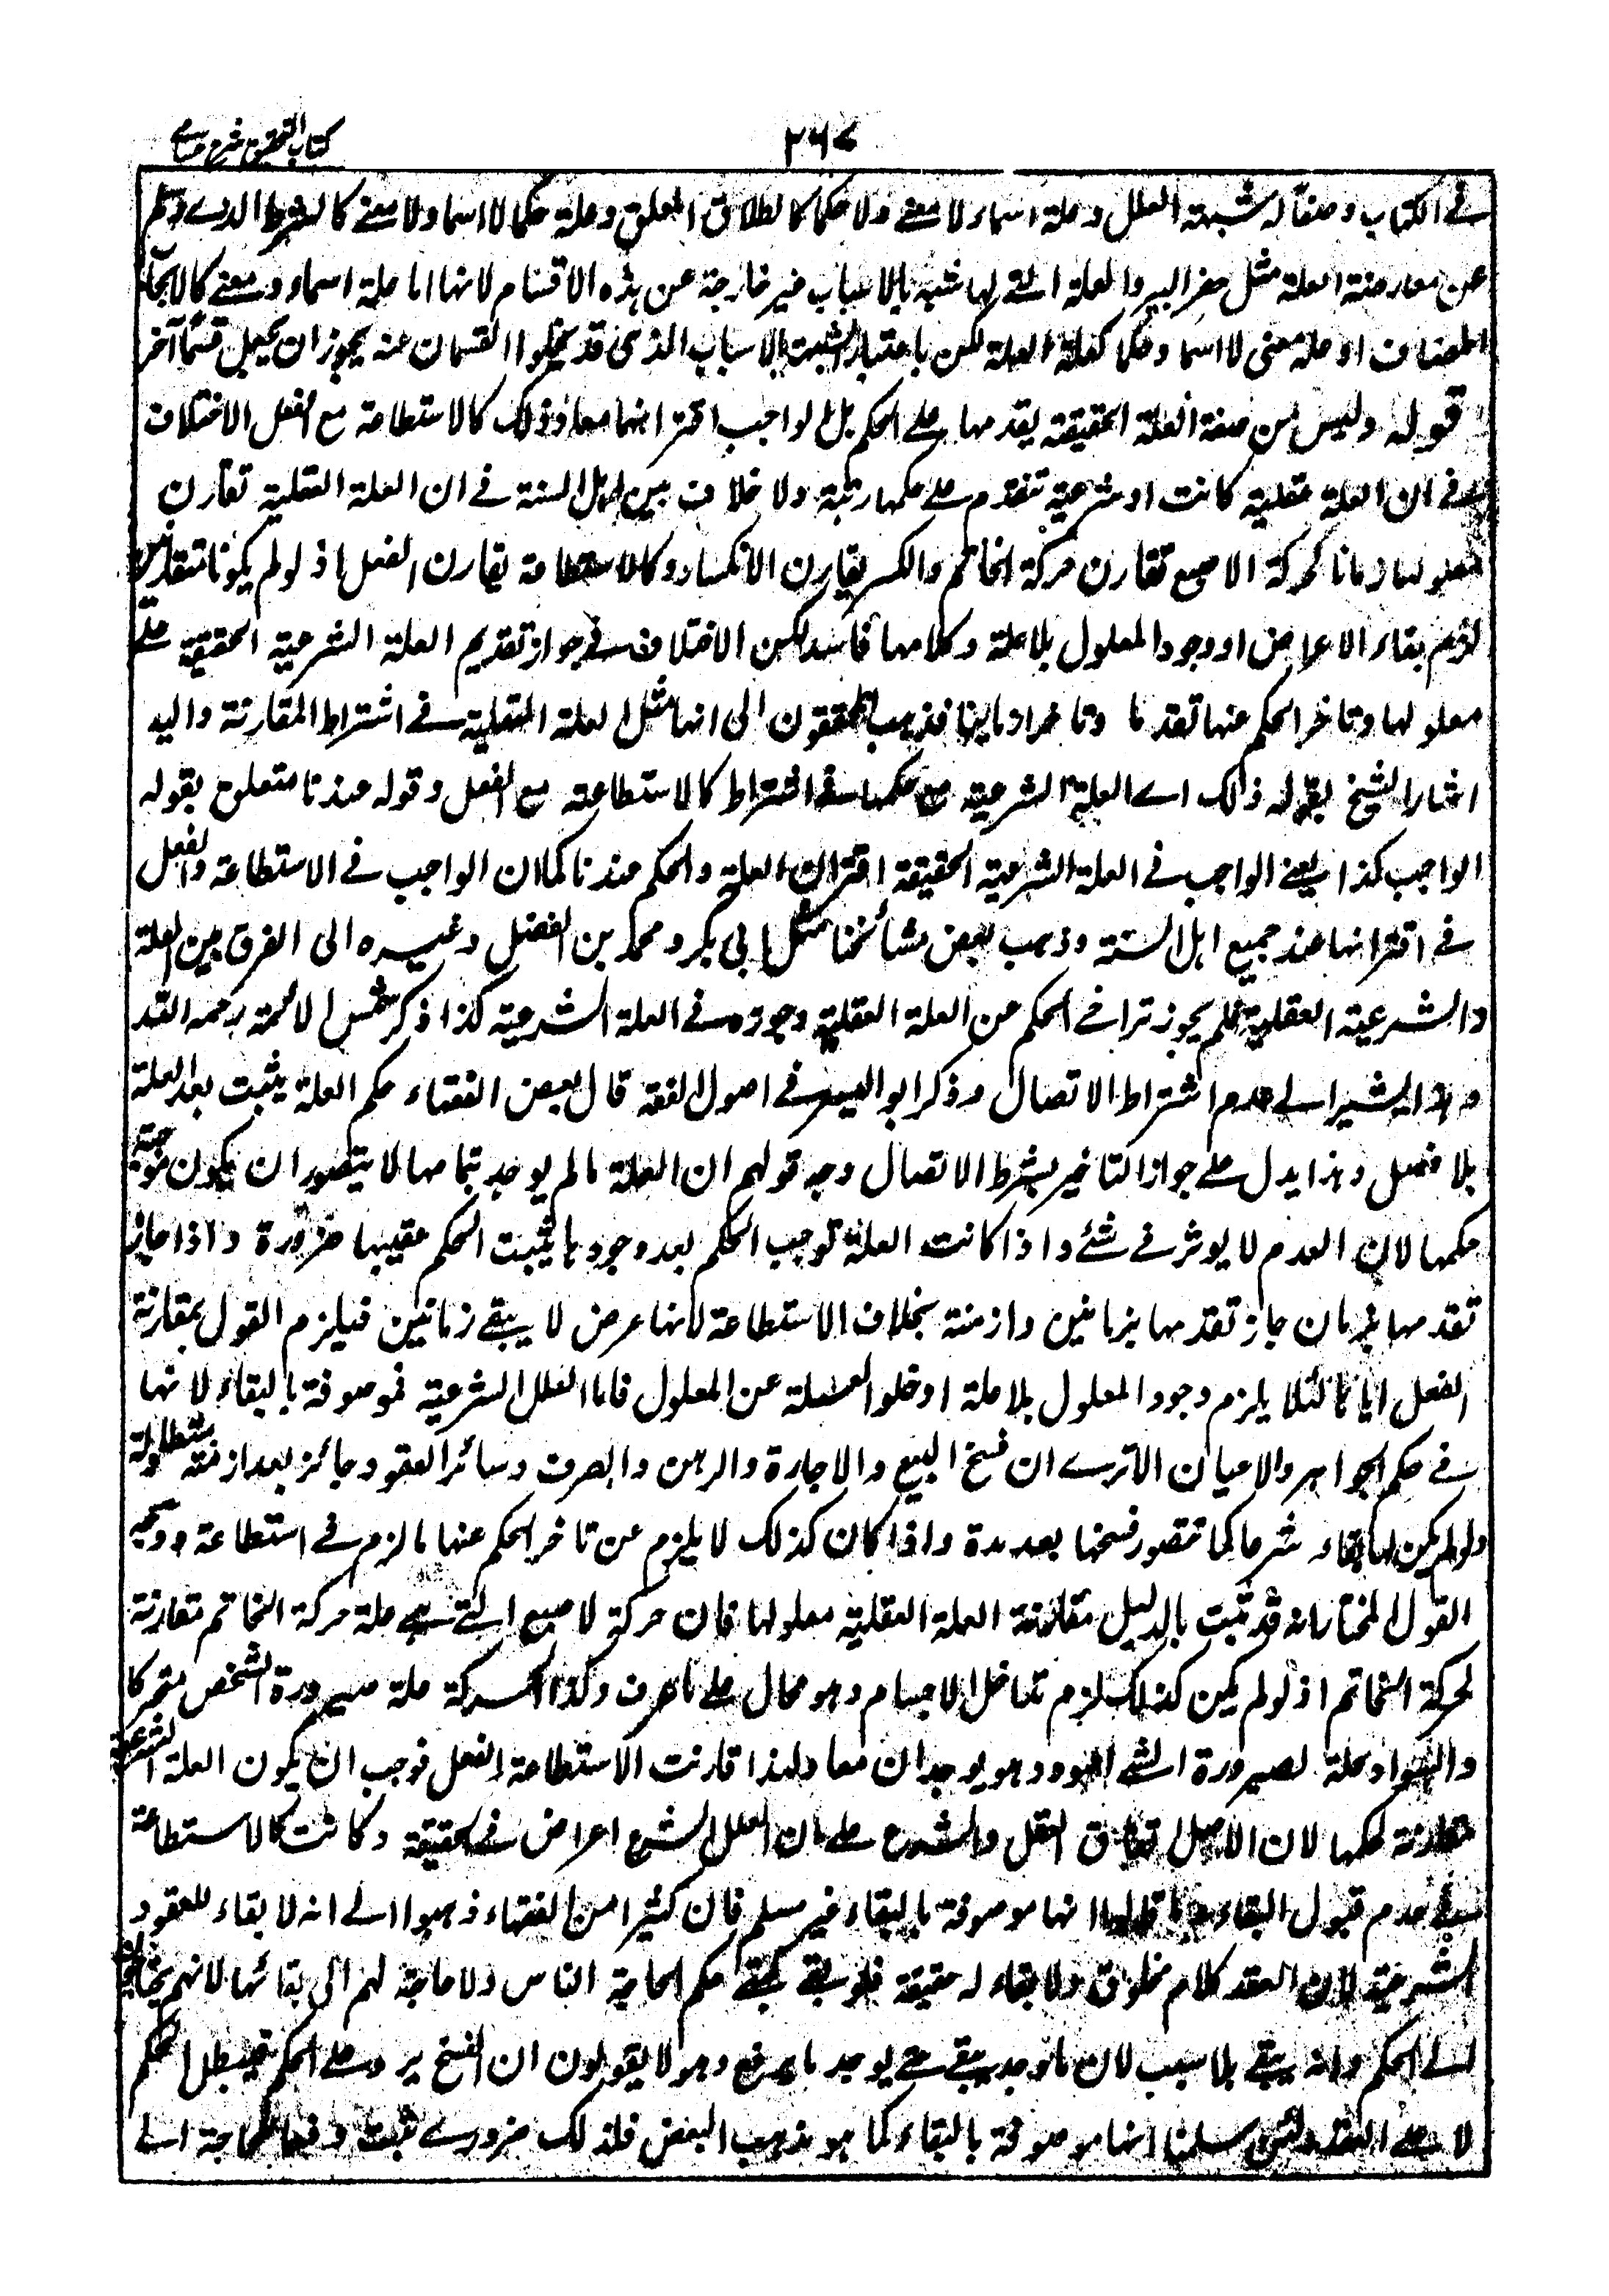 ٢٦٧
كتاب التحقيق شرح حسامى
فى الكتاب وصفا له شبهة العلل وعلة اسما ولا معنى ولا حكما كالطلاق المعلق وعلة حكما لا اسما ولا معنى كالشرط الذى سلم
عن معارضة العلة مثل حفر البير والعلة التى لها شبه بالاسباب غير خارجة عن هذه الاقسام لانها اما علة اسما ومعنى كالايجاب
المضاف او علة معنى لا اسما وحكما كعلة العلة لكن باعتبار الشبه بالاسباب الذى قد يخلوا القسمان عنه يجوز ان يجعل قسما آخر
قوله وليس من صفة العلة الحقيقة يقدمها على الحكم بل الواجب اقترانهما معا وذلك كالاستطاعة مع الفعل الاختلاف
فى ان العلة عقلية كانت او شرعية تتقدم على حكمها رتبة ولا خلاف بين اهل السنة فى ان العلة العقلية تقارن
معلولها زمانا كحركة الاصبع تقارن حركة الخاتم والكسر يقارن الانكسار وكالاستطاعة يقارن الفعل اذ لو لم يكونا متقارنين
لزم بقاء الاعراض او وجود المعلول بلا علة وكلاهما فاسد لكن الاختلاف فى جواز تقديم العلة الشرعية الحقيقية على
معلولها وتاخر الحكم عنها تقدما وتاخرا زمانيا فذهب المحققون الى انها مثل العلة العقلية فى اشتراط المقارنة واليه
اشار الشيخ بقوله ذلك اى العلة الشرعية مع حكمها فى اشتراط كالاستطاعة مع الفعل وقوله عندنا متعلق بقوله
الواجب كذا يعنى الواجب فى العلة الشرعية الحقيقة اقتران العلة والحكم عندنا كما ان الواجب فى الاستطاعة والفعل
فى اقترانها عند جميع اهل السنة وذهب بعض مشائخنا مثل ابى بكر ومحمد بن الفضل وغيره الى الفرق بين العلة
والشرعية العقلية فلم يجوز تراخى الحكم عن العلة العقلية وجوزه فى العلة الشرعية كذا ذكر شمس الائمة رحمه الله
وهذا يشير الى عدم اشتراط الاتصال وذكر ابو اليسر فى اصول الفقه قال بعض الفقهاء حكم العلة يثبت بعد العلة
بلا فصل وهذا يدل على جواز التاخير بشرط الاتصال وجه قولهم ان العلة ما لم يوجد بتمامها لا يتصور ان يكون موجبة
حكمها لان العدم لا يوثر فى شئ واذا كانت العلة توجب الحكم بعد وجودها يثبت الحكم عقيبها ضرورة واذا جاز
تقدمها بزمان جاز تقدمها بزمانين وازمنة بخلاف الاستطاعة لانها عرض لا يبقى زمانين فيلزم القول بمقارنة
الفعل اياها لئلا يلزم وجود المعلول بلا علة او خلو العلة عن المعلول فاما العلل الشرعية فموصوفة بالبقاء لانها
فى حكم الجواهر والاعيان الا ترى ان فسخ البيع والاجارة والرهن والصرف وسائر العقود جائز بعد ازمنة متطاولة
ولو لم يكن لها بقاء شرعا كما تتصور فسخها بعد مدة واذا كان كذلك لا يلزم من تاخر الحكم عنها ما لزم فى استطاعة ووجه
القول المختار انه قد ثبت بالدليل مقارنة العلة العقلية معلولها فان حركة الاصبع التى هى علة حركة الخاتم مقارنة
لحركة الخاتم اذ لو لم يكن كذلك لزم تداخل الاجسام وهو محال على ما عرف وكذا الحركة علة صيرورة الشخص متحركا
والسواد علة لصيرورة الشئ اسود وهو يوجدان معا ولهذا قارنت الاستطاعة الفعل فوجب ان يكون العلة الشرعية
مقارنة لحكمها لان الاصل توافق العقل والشرع على ان العلل الشرع اعراض فى الحقيقة وكانت كالاستطاعة
فى عدم قبول البقاء وما قالوا انها موصوفة بالبقاء غير مسلم فان كثيرا من الفقهاء ذهبوا الى انه لا بقاء للعقود
الشرعية لان العقد كلام مخلوق ولا بقاء له حقيقة فلو بقى لبقى حكم الحاجة الناس ولا حاجة لهم الى بقائها لانهم يحتاجون
الى الحكم وانه يبقى بلا سبب لان ما وجد يبقى حتى يوجد ما يرفع وهو لا يقولون ان الفسخ يرد على الحكم فيبطل الحكم
لا على العقد ولئن سلمنا انها موصوفة بالبقاء كما هو مذهب البعض فلذلك ضرورى ثبت دفعا للحاجة الى